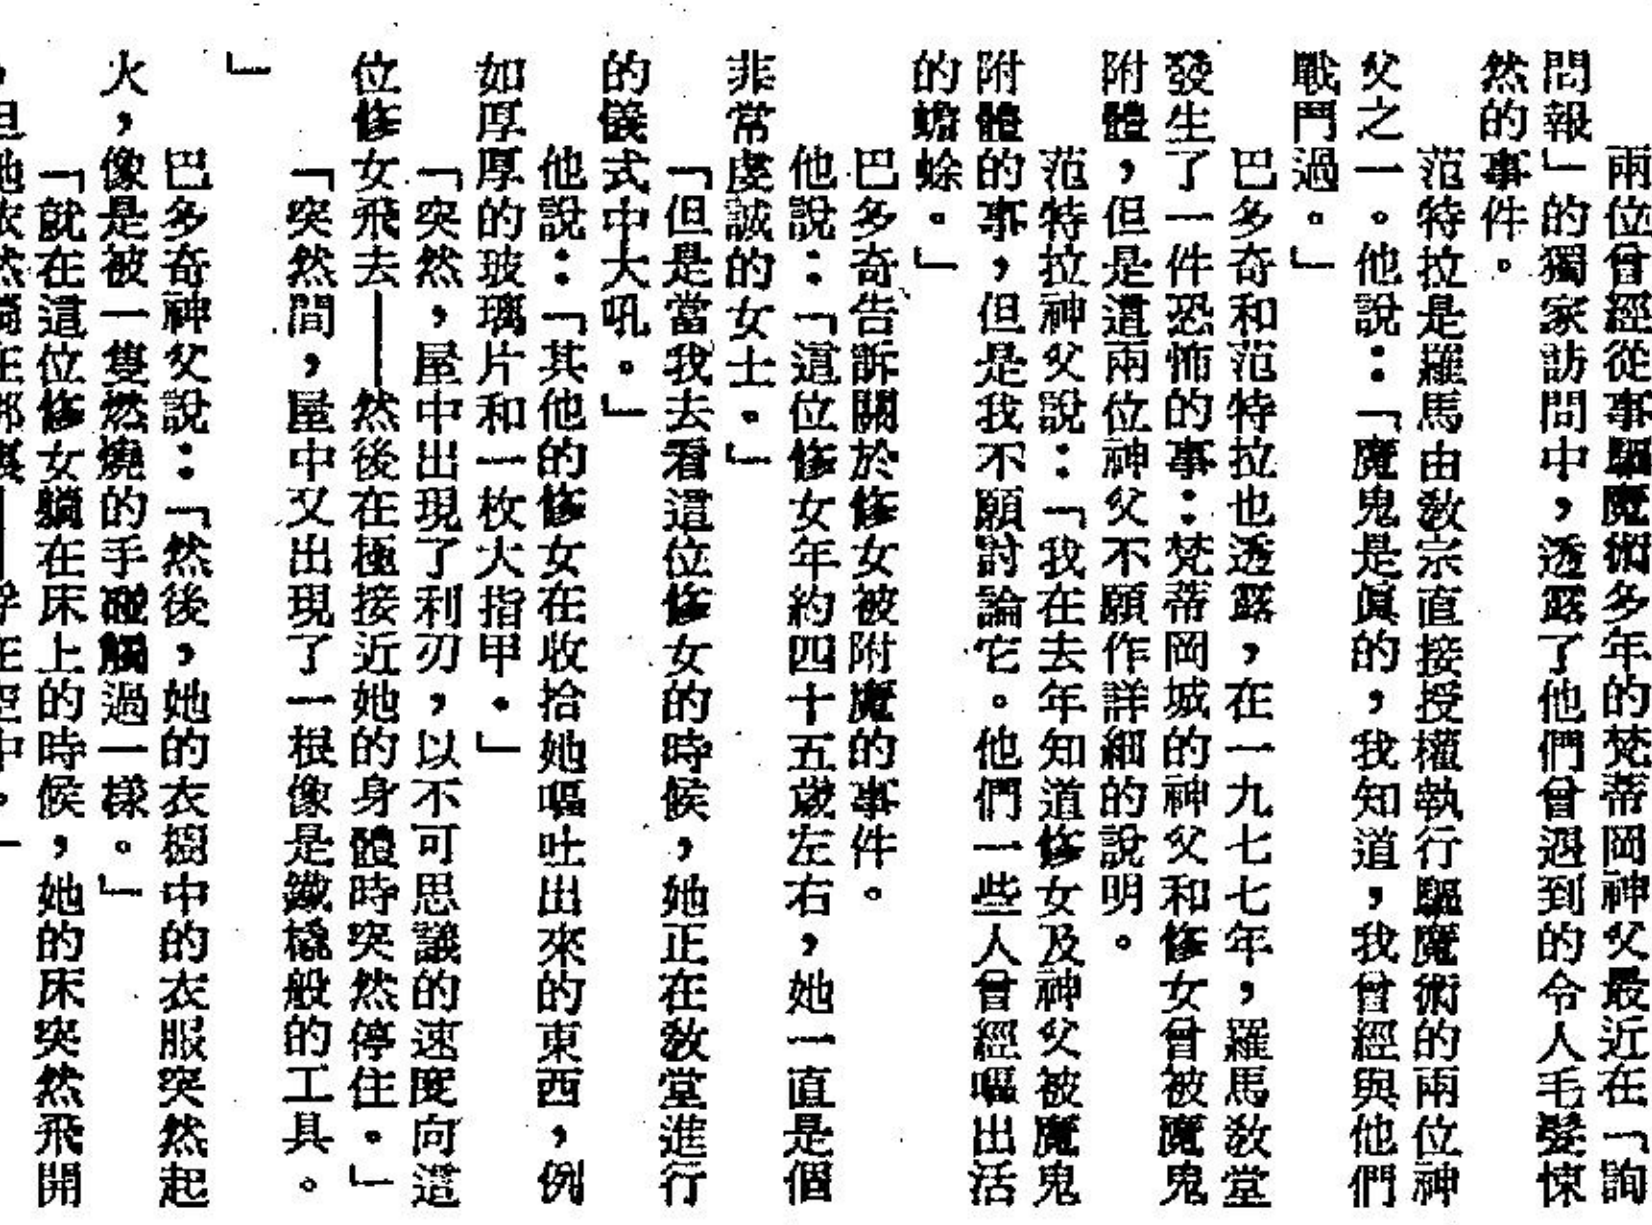 兩位曾經從事驅魔術多年的梵蒂岡神父最近在「詢
問報」的獨家訪問中，透露了他們曾遇到的令人毛髮悚
然的事件。
范特拉是羅馬由敎宗直接授權執行驅魔術的兩位神
父之一。他說：「魔鬼是眞的，我知道，我曾經與他們
戰鬥過。」
巴多奇和范特拉也透露，在一九七七年，羅馬敎堂
發生了一件恐怖的事：梵蒂岡城的神父和修女曾被魔鬼
附體，但是這兩位神父不願作詳細的說明。
范特拉神父說：「我在去年知道修女及神父被魔鬼
附體的事，但是我不願討論它。他們一些人曾經嘔出活
的蟾蜍。」
巴多奇告訴關於修女被附魔的事件。
他說：「這位修女年約四十五歲左右，她一直是個
非常虔誠的女士。」
「但是當我去看這位修女的時候，她正在敎堂進行
的儀式中大吼。」
他說：「其他的修女在收拾她嘔吐出來的東西，例
如厚厚的玻璃片和一枚大指甲。」
「突然，屋中出現了利刃，以不可思議的速度向這
位修女飛去——然後在極接近她的身體時突然停住。」
「突然間，屋中又出現了一根像是鐵橇般的工具。
」
巴多奇神父說：「然後，她的衣櫥中的衣服突然起
火，像是被一隻燃燒的手碰觸過一樣。」
「就在這位修女躺在床上的時候，她的床突然飛開
，但她依然躺在那裏——浮在空中。」